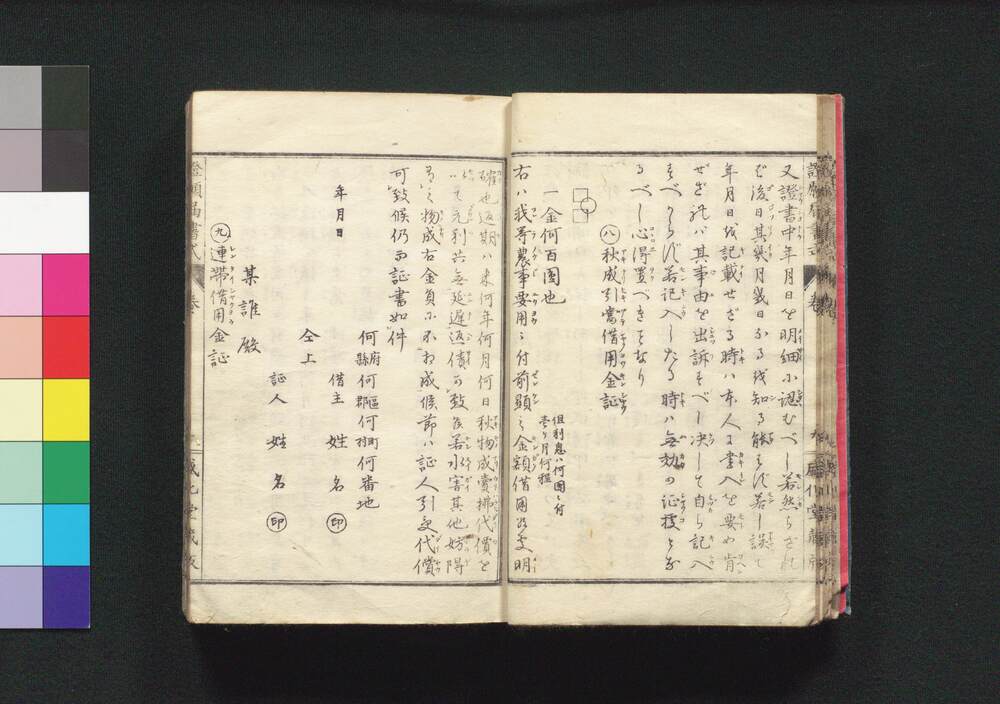 又證書中年月日を明細に認むべし若然らざれ
ば後日其幾月幾日なるを知る能はず若し誤て
年月日を記載せざる時は本人に書入を要め肯
せざれば其事由を出訴すべし決して自ら記入
すべからず若記入したる時は無効の証拠とな
るべし心得置べきことなり
㊇秋成引當借用金証
一金何百圓也
但利息ハ何圓ニ付
壱ヶ月何程
右ハ我等農事要用ニ付前顕之金額借用致
確也返期ハ来何年何月何日秋物成賣拂代價を
以て元利共無延遅返債可致候若水害其他妨障
有之物成右金員に不相成候節ハ証人引受代償
可致候仍而証書如件
何府縣何區郡何町村何番地
年月日
借主 姓名 ㊞
仝上
証人 姓名 ㊞
某誰殿
㊈連帯借用金証